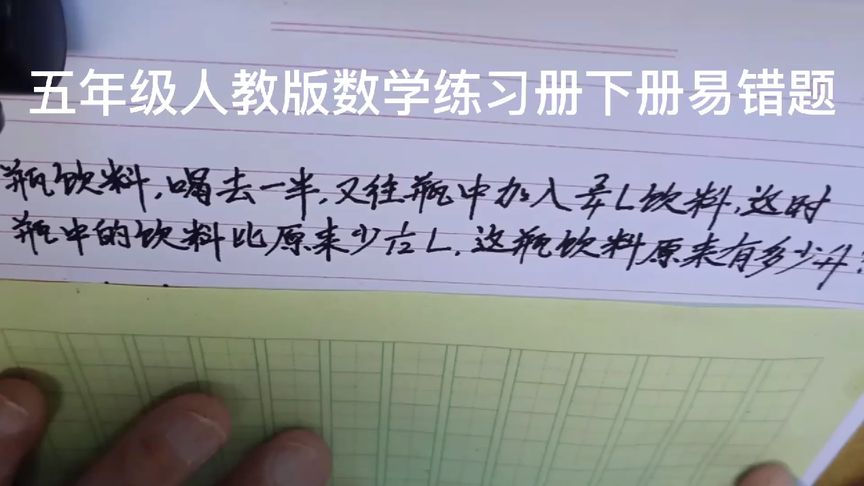 五年级人教版数学练习册下册易错题
瓶饮料,喝去一半,又往瓶中加入3/4L饮料,这时
瓶中的饮料比原来少1/12L,这瓶饮料原来有多少升?